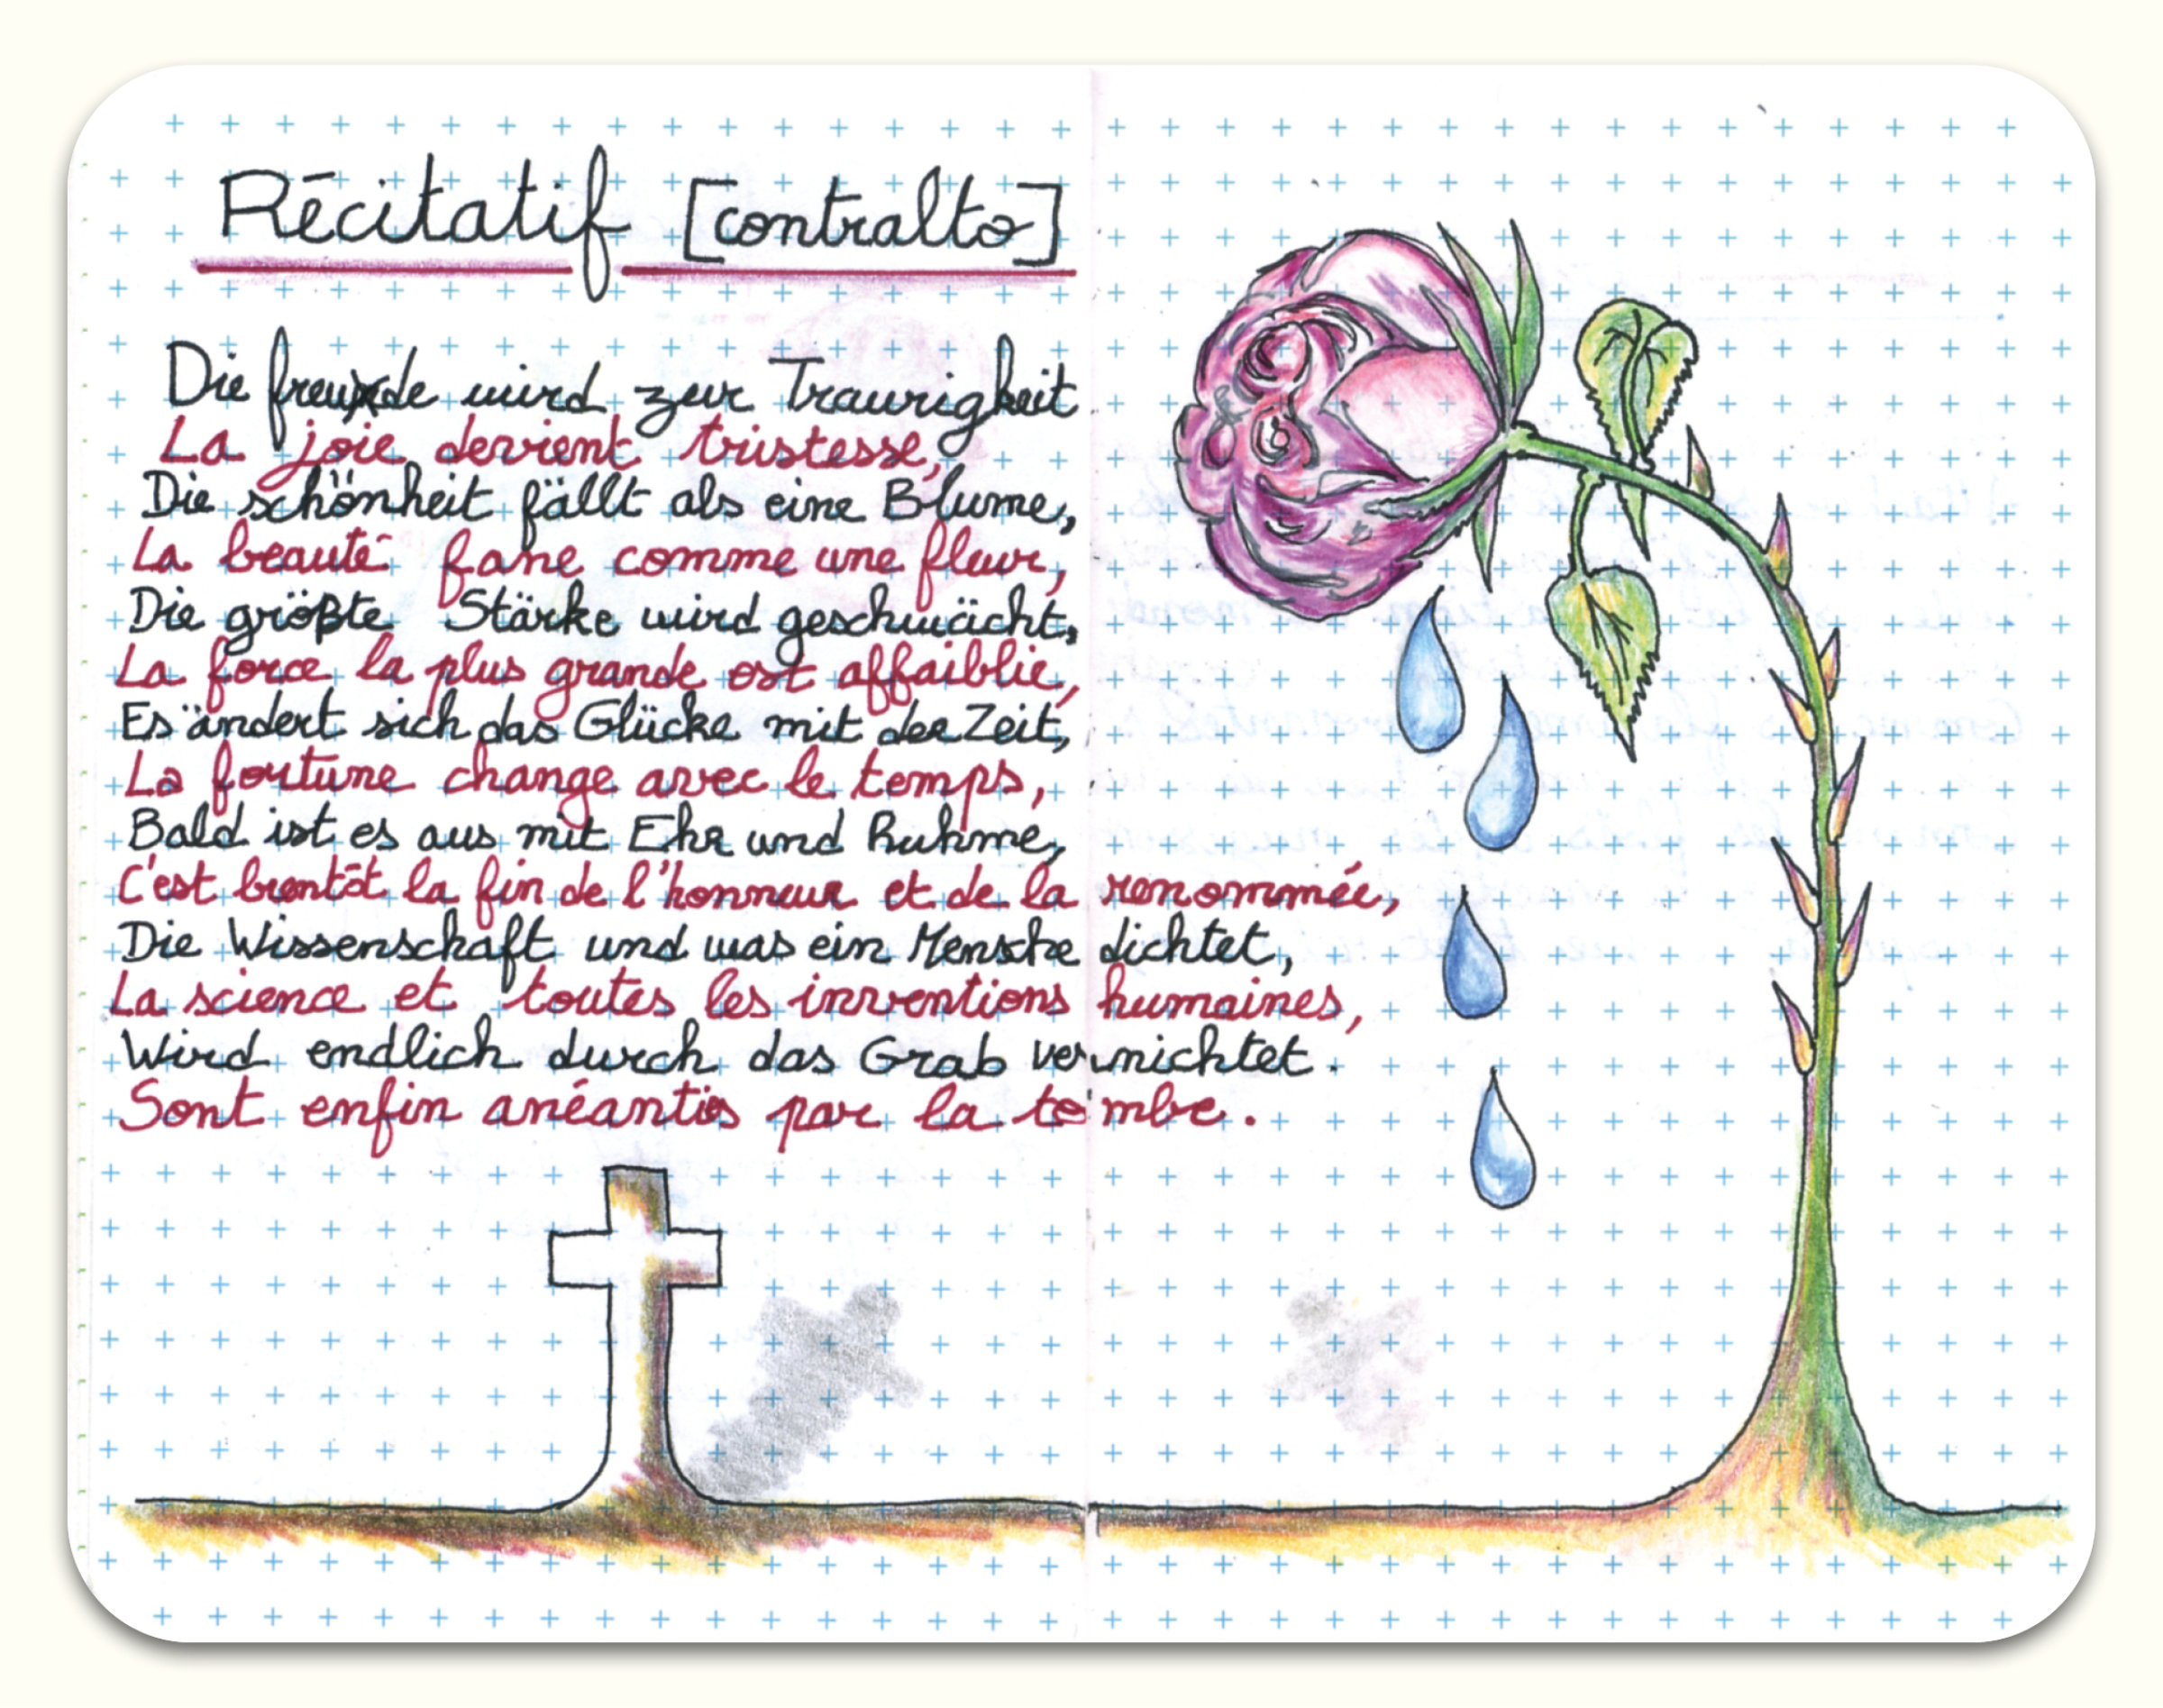 Récitatif [contralto]
Die freude wird zur Traurigkeit
La joie devient tristesse,
Die schönheit fällt als eine Blume,
La beauté fane comme une fleur,
Die größte Stärke wird geschwächt,
La force la plus grande est affaiblie,
Es ändert sich das Glücke mit der Zeit,
La fortune change avec le temps,
Bald ist es aus mit Ehr und Ruhme,
C'est bientôt la fin de l'honneur et de la renommée,
Die Wissenschaft und was ein Mensche dichtet,
La science et toutes les inventions humaines,
Wird endlich durch das Grab vernichtet.
Sont enfin anéanties par la tombe.